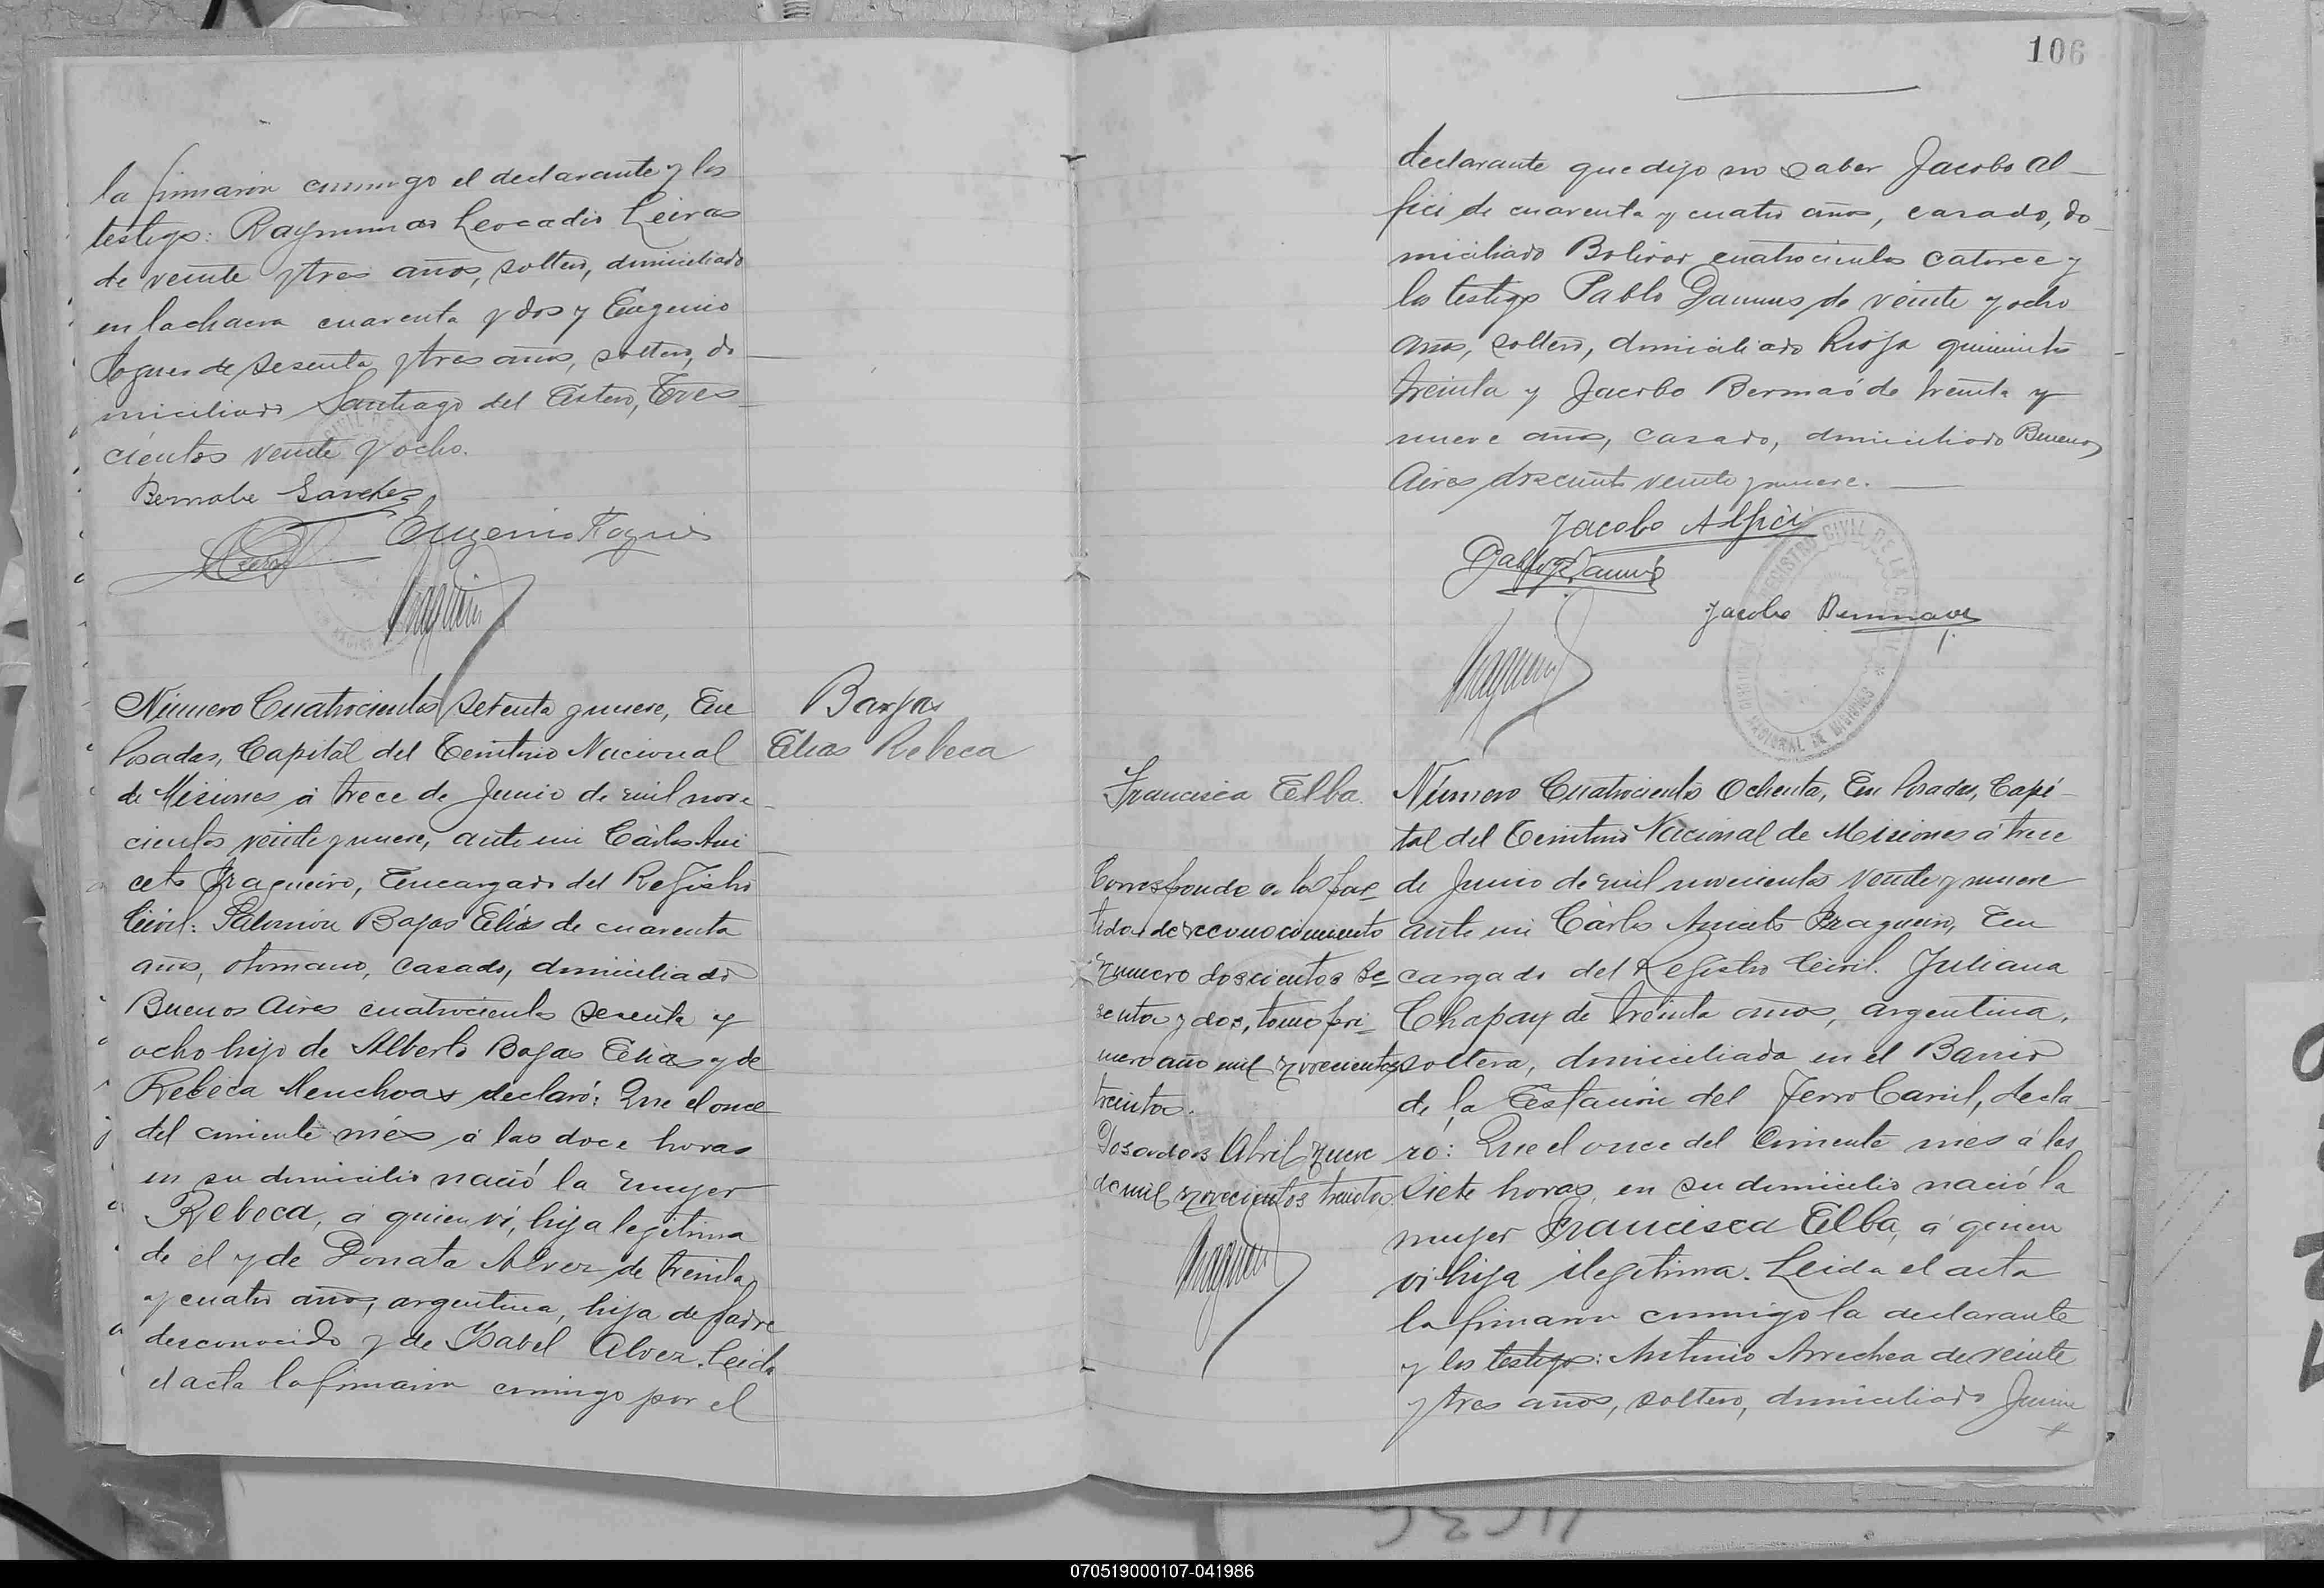 la firmaron conmigo el declarante y los
testigos: Raymundo Leocadio Leiras
de veinte y tres años, soltero, domiciliado
en la chacra cuarenta y dos y Eugenio
de sesenta y tres años, soltero, do
miciliado Santiago del Estero, Tres
cientos veinte y ocho.
Bernabe Sanchez
Eugenio
Número Cuatrocientos setenta y nueve, En
Posadas, Capital del Territorio Nacional
de Misiones á trece de Junio de mil nove
cientos veinte y nueve, ante mi Cárlos Ani
ceto Fragueiro, Encargado del Registro
Civil: Salomon Bajas Elías de cuarenta
años, otomano, casado, domiciliado
Buenos Aires cuatrocientos sesenta y
ocho hijo de Alberto Bajas Elias y de
Rebeca declaró: Que el once
del corriente més á las doce horas
en su domicilio nació la mujer
Rebeca, á quien ví, hija legitima
de el y de Donata Alvez de treinta
y cuatro años, argentina, hija de padre
desconocido y de Ysabel Alvez. Leida
el acta la firmaron conmigo por el
Barjas
Elias Rebeca
106
declarante que dijo no saber Jacobo Al
fici de cuarenta y cuatro años, casado, do
miciliado Bolivar cuatrocientos catorce y
los testigos Pablo de veinte y ocho
años, soltero, domiciliado Rioja quinientos
treinta y Jacobo de treinta y
nueve años, casado, domiciliado Buenos
Aires doscientos veinte y nueve.
Jacobo Alfici
Pablo
Jacobo
REGISTRO CIVIL DE LA CAPITAL
NACIONAL DE MISIONES
Francisca Elba.
Corresponde a la par
tida de reconocimiento
numero doscientos se
senta y dos, tomo pri
mero año mil novecientos
treinta.
Posadas Abril nueve
de mil novecientos treinta.
Número Cuatrocientos Ochenta, En Posadas, Capi
tal del Territorio Nacional de Misiones á trece
de Junio de mil novecientos veinte y nueve
ante mi Cárlos Aniceto Fragueiro, En
cargado del Registro Civil. Juliana
Chapay de treinta años, argentina,
soltera, domiciliada en el Barrio
de la Estación del Ferro Carril, decla
ró: Que el once del corriente més á las
siete horas, en su domicilio nació la
mujer Francisca Elba, á quien
vi hija ilegitima. Leida el acta
la firmaron conmigo la declarante
y los testigos: Antonio Arrechea de veinte
y tres años, soltero, domiciliado Junin
070519000107-041986